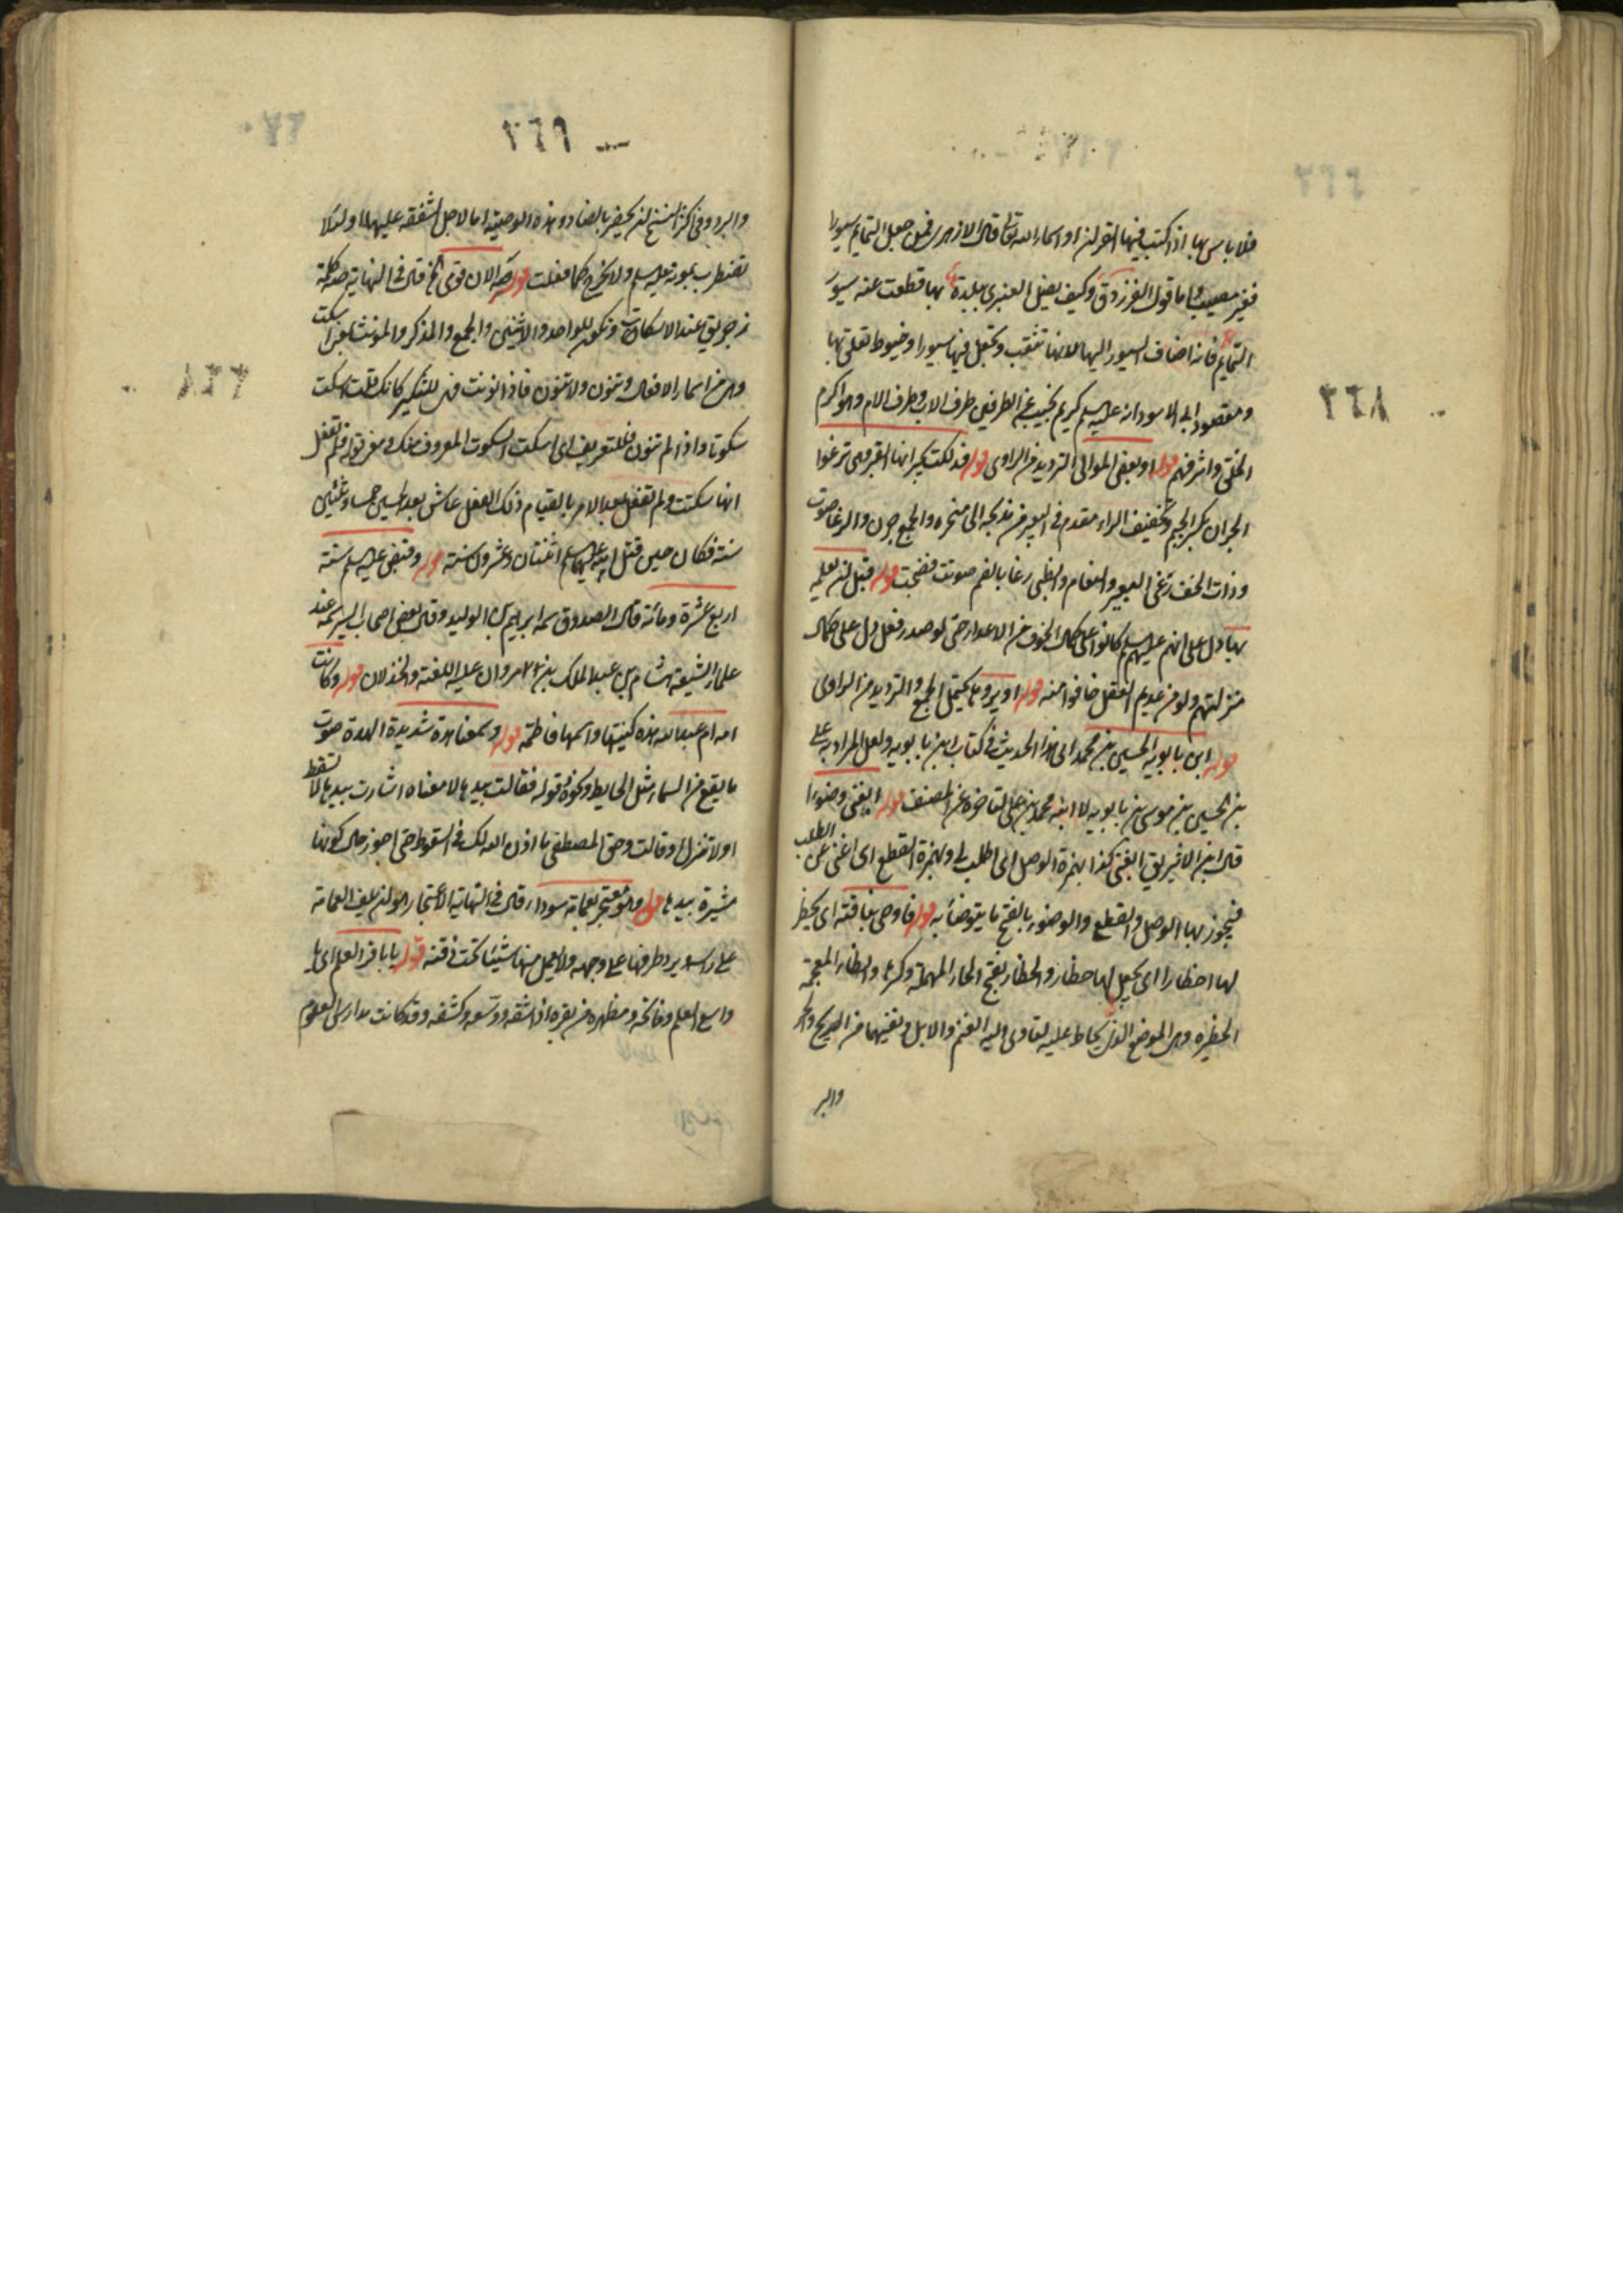 ٢٦٨
فلا باس بها اذا كتب فيها القرآن او اسماء الله تعالى قال الازهري فمن جعل التمايم سيورا
فغير مصيب واما قول الفرزدق وكيف يضل العنبري ببلدة بها قطعت عنه سيور
التمايم فانه اضاف السيور اليها لانها تثقب وتجعل فيها سيورا وخيوط تعلق بها
ومقصود ابي الاسود انه عليه السلم كريم نجيب من الطرفين طرف الاب وطرف الام وهو اكرم
الخلق واشرفهم قوله او بعض الموالي الترديد من الراوي قوله فدلكت بجرانها القبر وهي ترغوا
الجران بكسر الجيم وتخفيف الراء مقدم البعير من مذبحه الى منحره والجمع جرن والرغا صوت
وذات الخف رغى البعير والنعام والظبي رغا بالضم صوتت فضجت قوله قبل ان يعلمه
بها دل على انهم عليهم السلم كانوا على كمال الخوف من الاعداء حتى لو صدر فعل دل على كمال
منزلتهم ولو من عديم العقل خافوا منه قوله او يروها يحتمل الجمع والترديد من الراوي
قوله ابن بابويه الحسين بن محمد الى هذا الحديث في كتاب ابن بابويه ولعل المراد به علي
بن الحسين بن موسى بن بابويه لا ابنه محمد بن علي لتاخره عن المصنف قوله ابغني وضوءا
قال ابن الاثير يقال ابغني كذا بهمزة الوصل اي اطلب لي وبهمزة القطع اي اعني على الطلب
فيجوز بها الوصل والقطع والوضوء بالفتح ما يتوضأ به قوله فاوصى بناقته ان يحظر
لها احظارا اي يجعل لها حظار والحظار بفتح الحاء المهملة وكسرها والظاء المعجمة
الحظيرة وهي الموضع الذي يحاط عليه لتاوي اليه الغنم والابل وتقيهما من الريح والحر
والبر
٢٦٩
والبرد وفي اكثر النسخ ان يحضر بالضاد وهذه الوصية اما لاجل الشفقة عليها او لئلا
تضطرب بموته عليه السلم ولا تخرج كما فعلت قوله صه الان قومي الخ قال في النهاية صه كلمة
زجر يقال عند الاسكات وتكون للواحد والاثنين والجمع والمذكر والمونث بمعنى اسكت
وهي من اسماء الافعال وتنون ولا تنون فاذا نونت فهي للتنكير كانك قلت اسكت
سكوتا واذا لم تنون فللتعريف اي اسكت السكوت المعروف منك قوله فلم تفعل
انها سكتت ولم تفعل بعد الامر بالقيام ذلك الفعل عاش بعد الحسين خمسا وثلثين
سنة فكان حين قتل ابيه عليهما السلم اثنتان وعشرون سنة قوله وقبض عليه السلم سنة
اربع عشرة ومائة قال الصدوق سمه ابراهيم بن الوليد وقال بعض اصحاب السير سمه عند
علماء الشيعة هشام بن عبد الملك بن مروان عليه اللعنة والخذلان قوله وكانت
امه ام عبد الله هذه كنيتها واسمها فاطمة قوله وسمعنا هدة شديدة الهدة صوت
ما يقع من السماء مثل الحايط ونحوه قوله فقالت بيدها لا معناه اشارت بيدها لا تسقط
او لا تنزل وقالت وحق المصطفى ما اذن الله لك في السقوط حتى اجوز حال كونها
مشيرة بيدها قوله وهو معتجر بعمامة سوداء قال في النهاية الاعتجار هو ان يلف العمامة
على راسه ويرد طرفها على وجهه ولا يعمل منها شيئا تحت ذقنه قوله يا باقر العلم اي يا
واسع العلم وفاتحه ومظهره من بقره اذا شقه ووسعه وكشفه وقد كانت مدارس العلوم